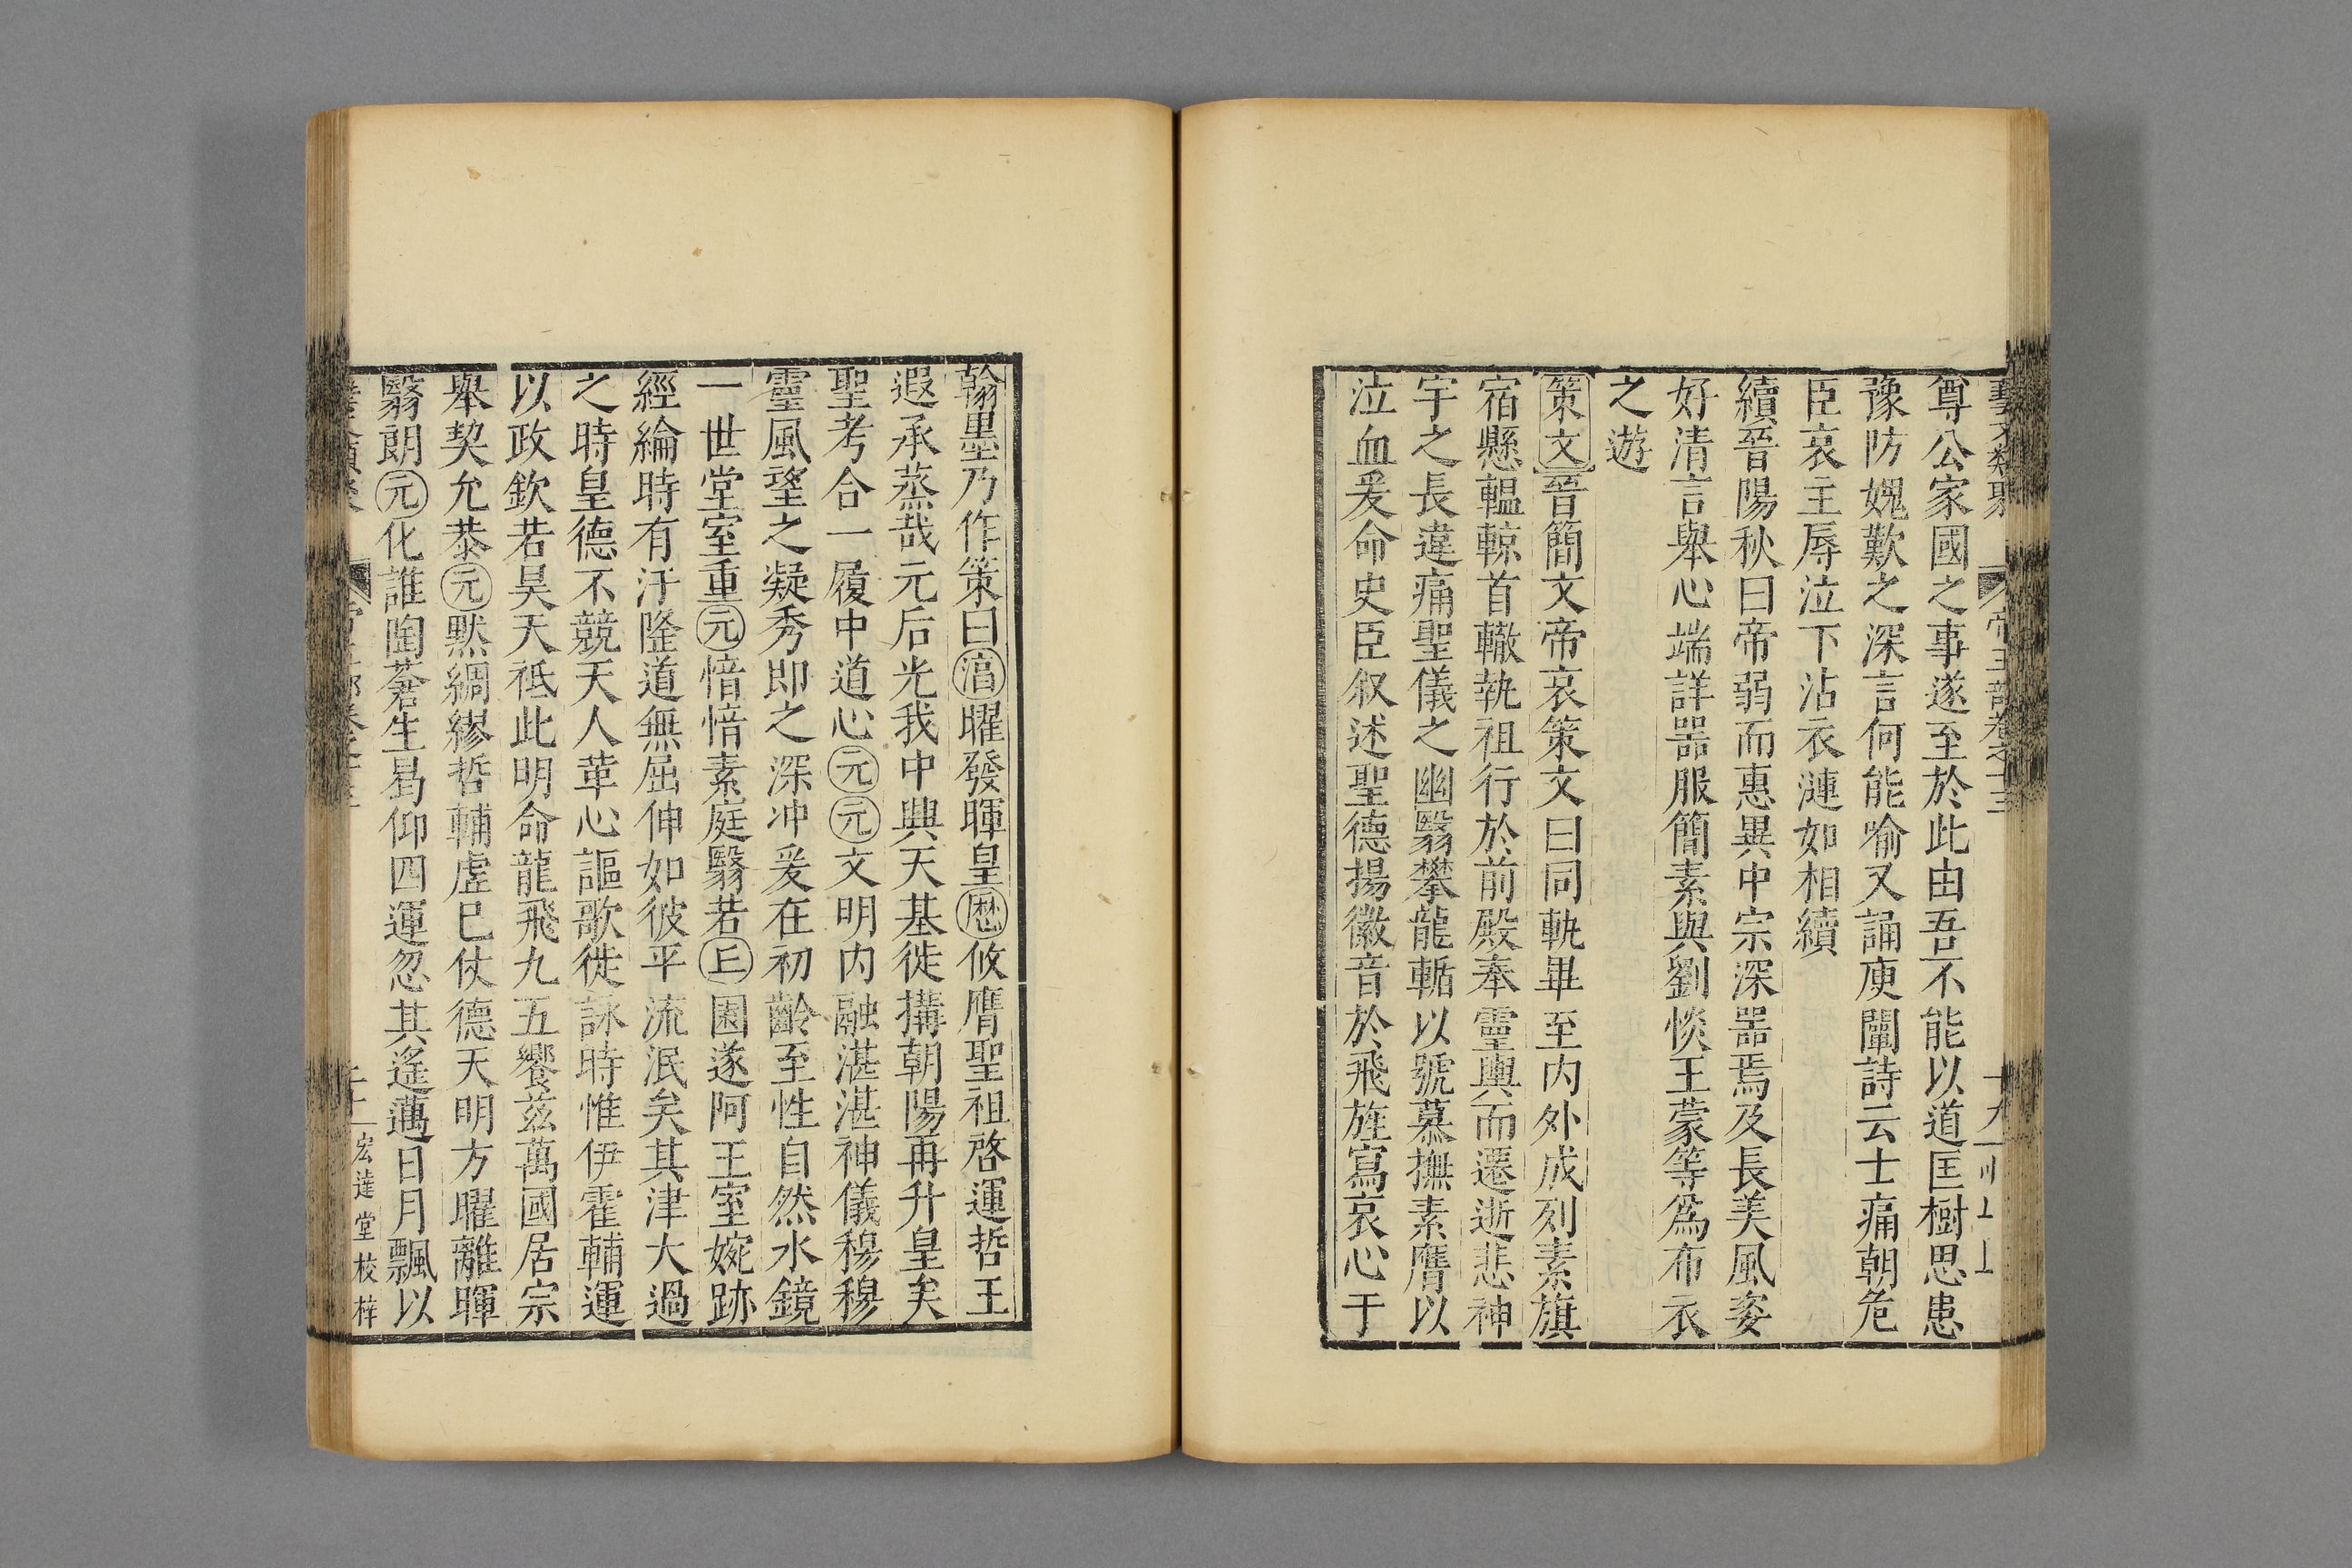 藝文類聚 帝王部卷之十三 十九
尊公家國之事遂至於此由吾不能以道匡樹思患
豫防媿歎之深言何能喻又誦庾闡詩云士痛朝危
臣哀主辱泣下沾衣漣如相續
續晉陽秋曰帝弱而惠異中宗深器焉及長美風姿
好清言舉心端詳器服簡素與劉惔王蒙等爲布衣
之遊
策文晉簡文帝哀策文曰同軌畢至内外成列素旗
宿懸轀輬首轍執祖行於前殿奉靈輿而遷逝悲神
宇之長違痛聖儀之幽翳攀龍輴以號慕撫素膺以
泣血爰命史臣叙述聖德揚徽音於飛旌寫哀心于
翰墨乃作策曰㴞曜發暉皇厯攸膺聖祖啓運哲王
遐承蒸哉元后光我中興天基徙搆朝陽再升皇矣
聖考合一履中道心元元文明内融湛湛神儀穆穆
靈風望之凝秀即之深冲爰在初齡至性自然水鏡
一世堂室重元愔愔素庭翳若丘園遂阿王室婉跡
經綸時有汙隆道無屈伸如彼平流泯矣其津大過
之時皇德不競天人革心謳歌徙詠時惟伊霍輔運
以政欽若昊天祗此明命龍飛九五饗茲萬國居宗
舉契允恭元默綢繆哲輔虛已仗德天明方曜離暉
翳朗元化誰陶蒼生曷仰四運忽其遙邁日月飄以
宏達堂校梓